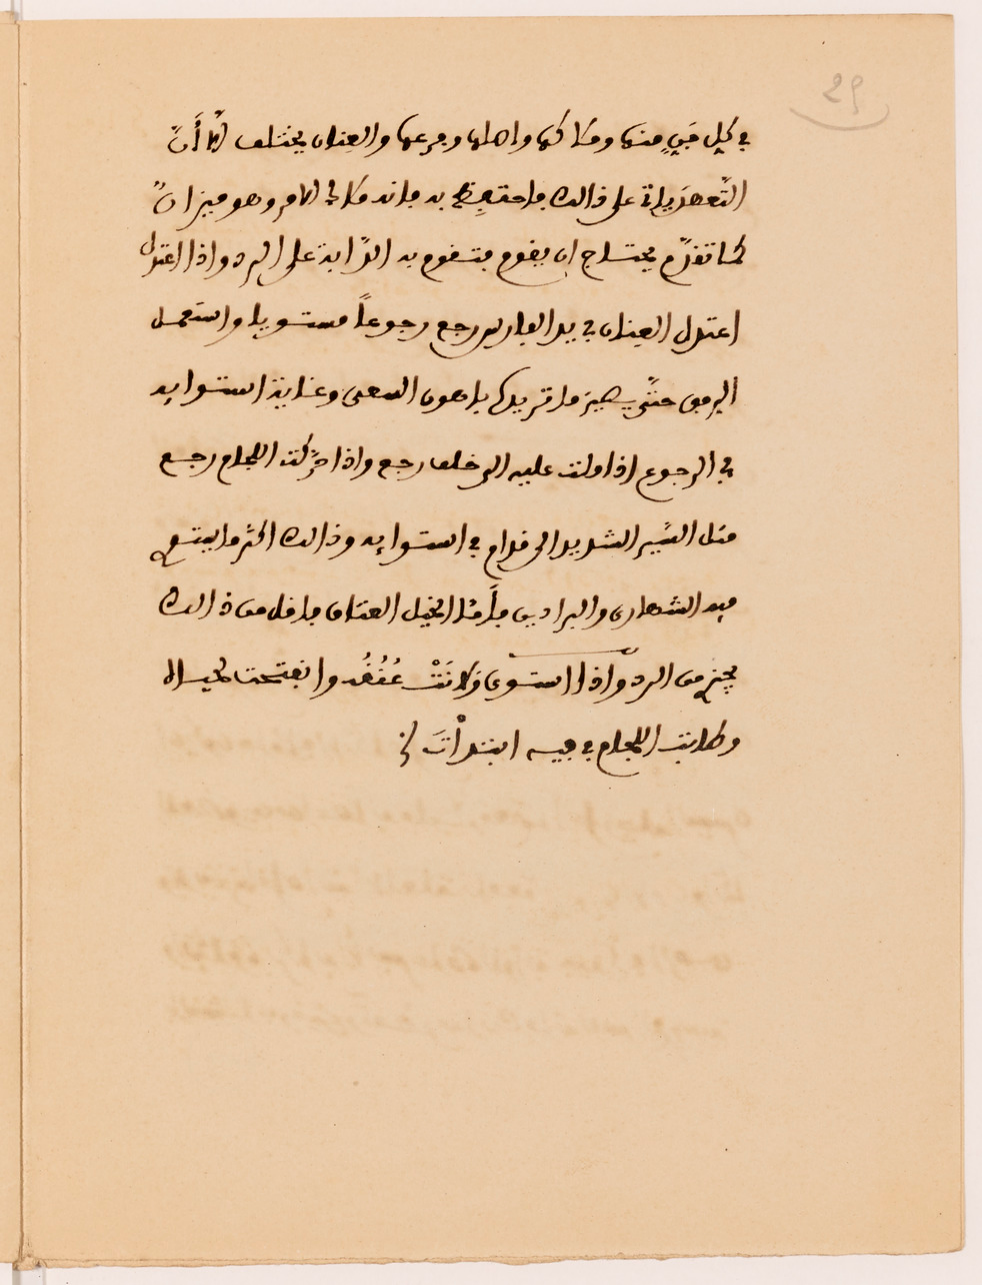 29
في كل فن منها ومذاكها واصلها وفرعها والعنان يختلف إلا أنّ
التعهد ياتى على ذالك فاحتفظ به فانه ملاك الامر وهو ميزان
كما تقدّم يحتاج ان يقوم فتقوم به الدّابة على الرد واذا اعتدل
اعتدل العنان في يد الفارس رجع رجوعاً مستويا واستعمل
الرفق حتّى يصير ما تريدك باهون السعى وغاية استوايه
في الرجوع اذا ولت عليه الى خلف رجع واذا حرّكت اللجام رجع
مثل السّير الشديد الى قدام في استوايه وذالك اكثر ما يتسع
فيه الشهارى والبراذين فأمّا الخيل العتاق فاقل من ذالك
يجزى من الرد واذا استوى ولانَتْ عُنُقُه وانفتحت لحياه
وطابت اللجام في فيه ابتدأتَ